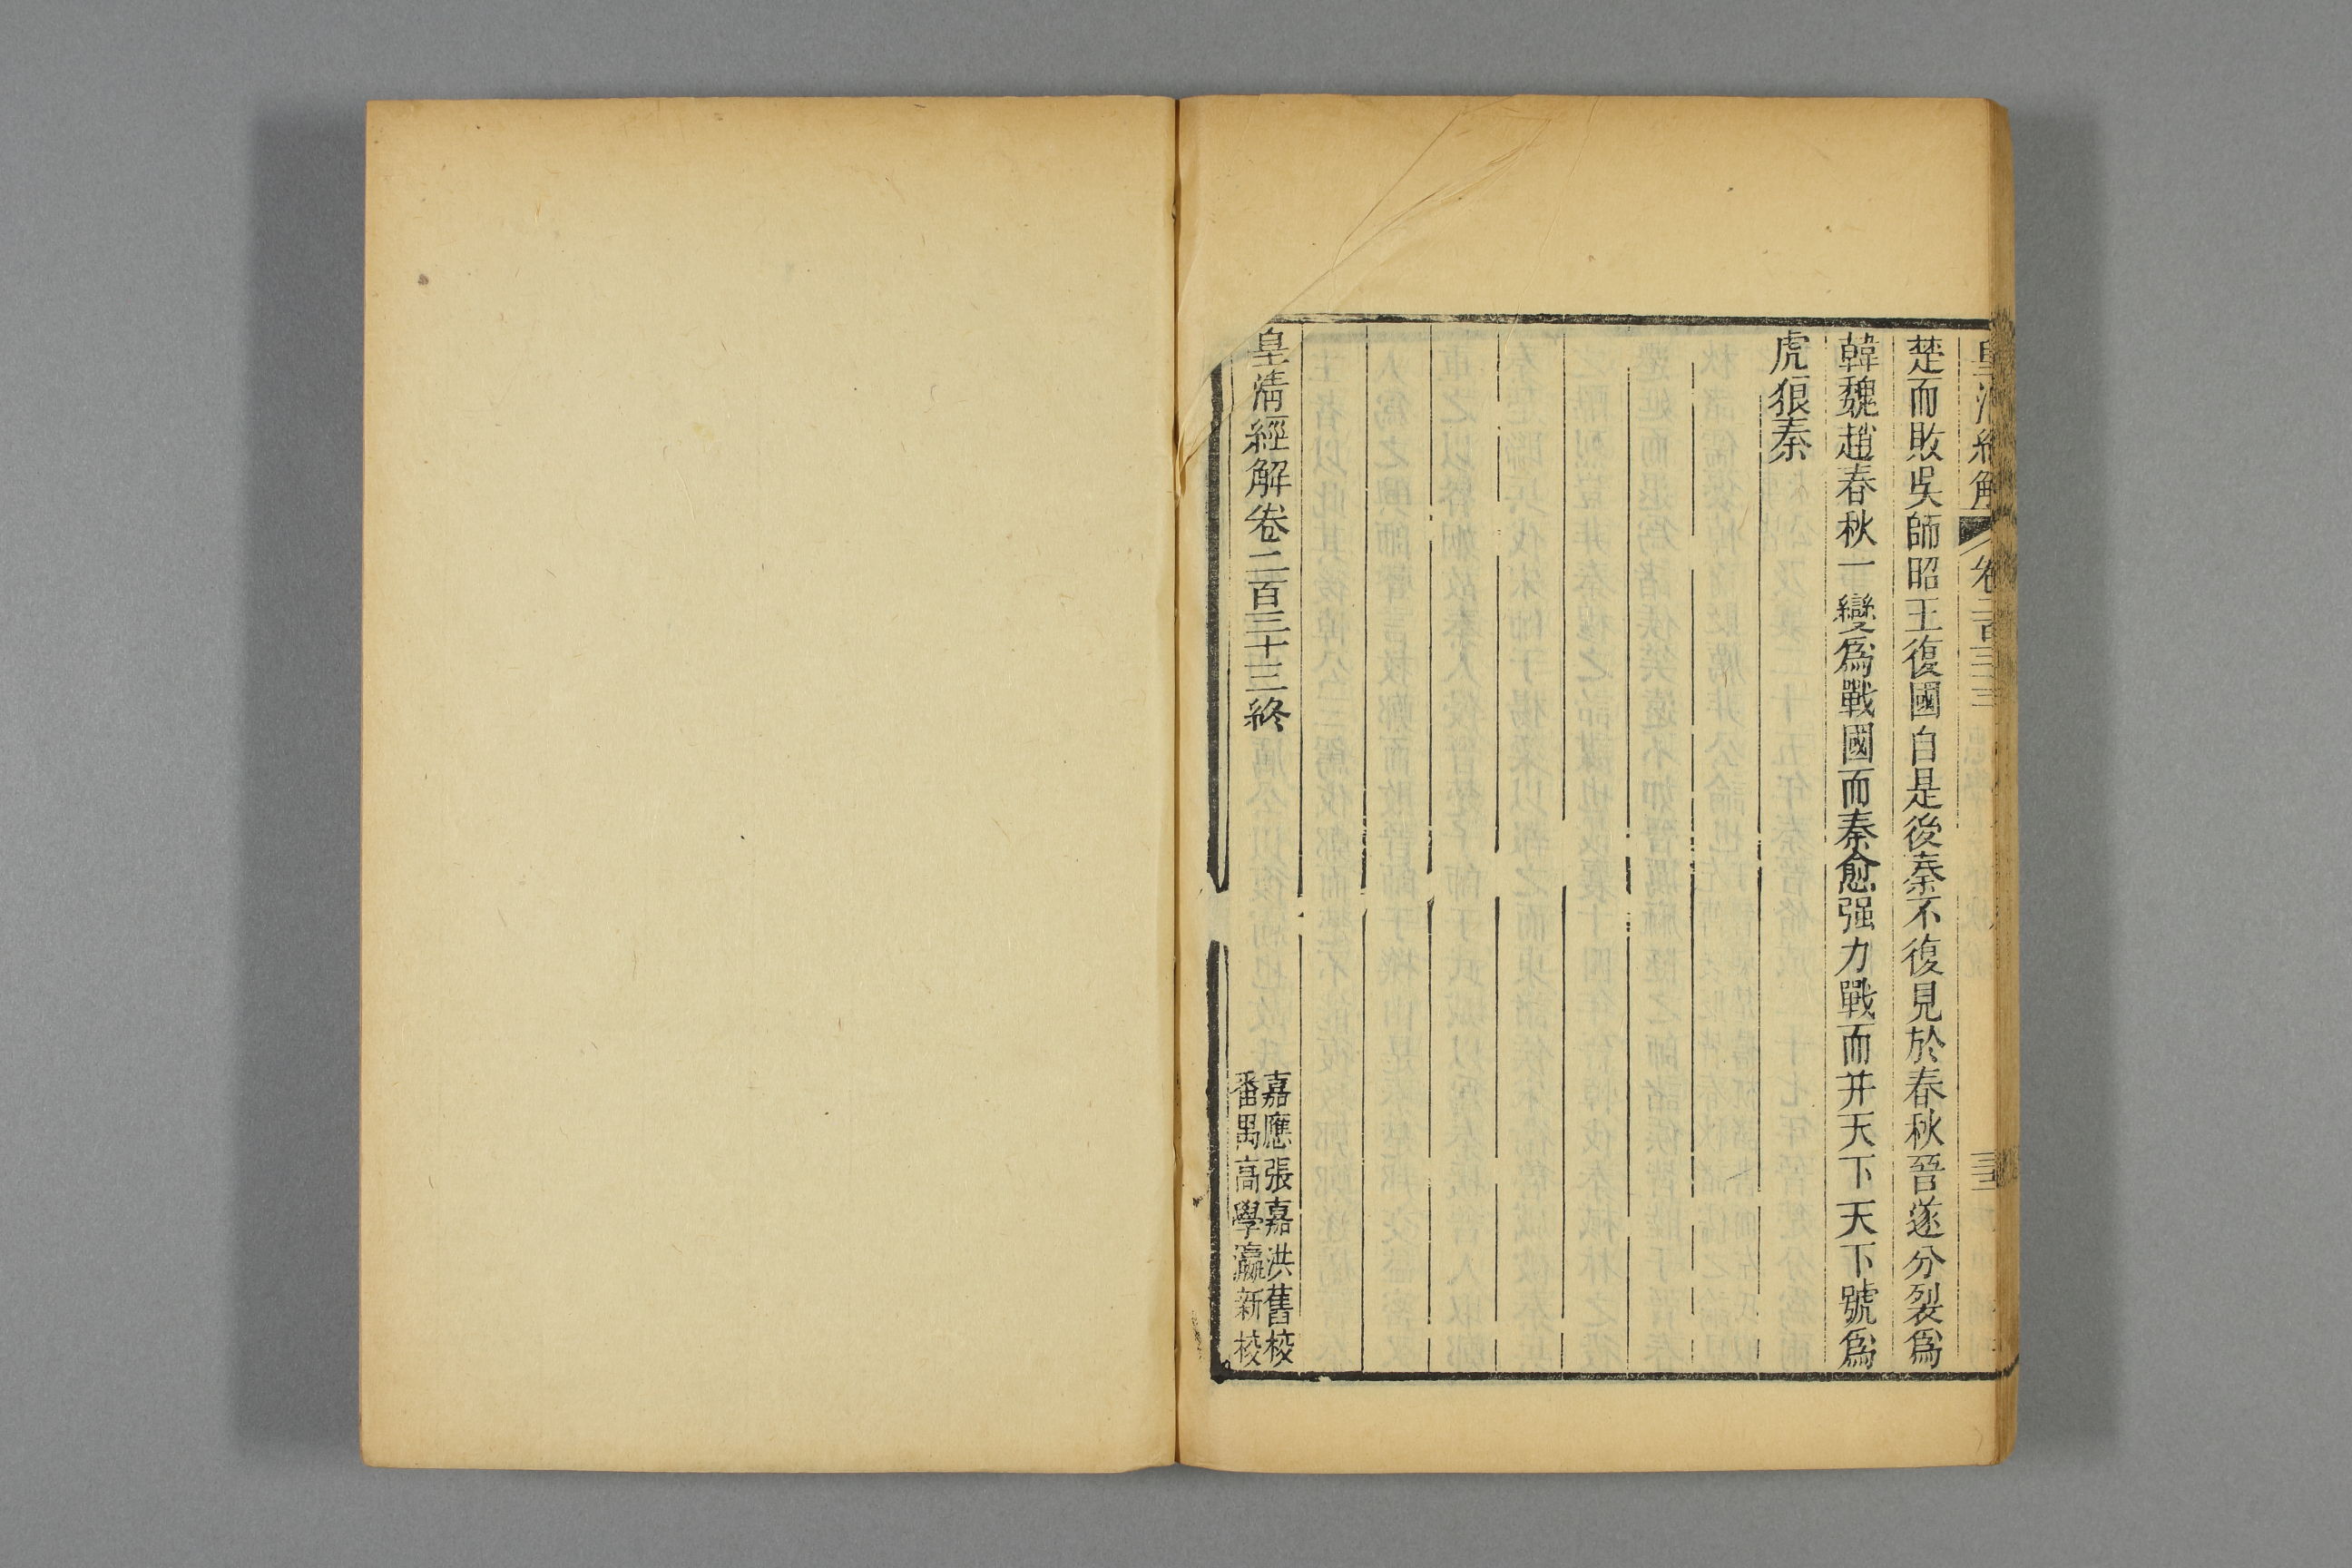 皇清經解 卷二百三十三 三十二
楚而敗吳師昭王復國自是後秦不復見於春秋晉遂分裂爲
韓魏趙春秋一變爲戰國而秦愈强力戰而并天下天下號爲
虎狼秦
皇清經解卷二百三十三終
嘉應張嘉洪舊校
番禺高學瀛新校